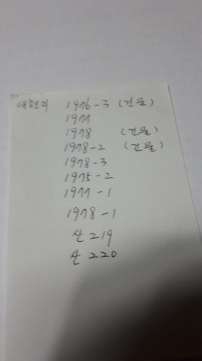 대현리 1976-3 (건물)
1977
1978 (건물)
1978-2 (건물)
1978-3
1975-2
1977-1
1978-1
산 219
산 220